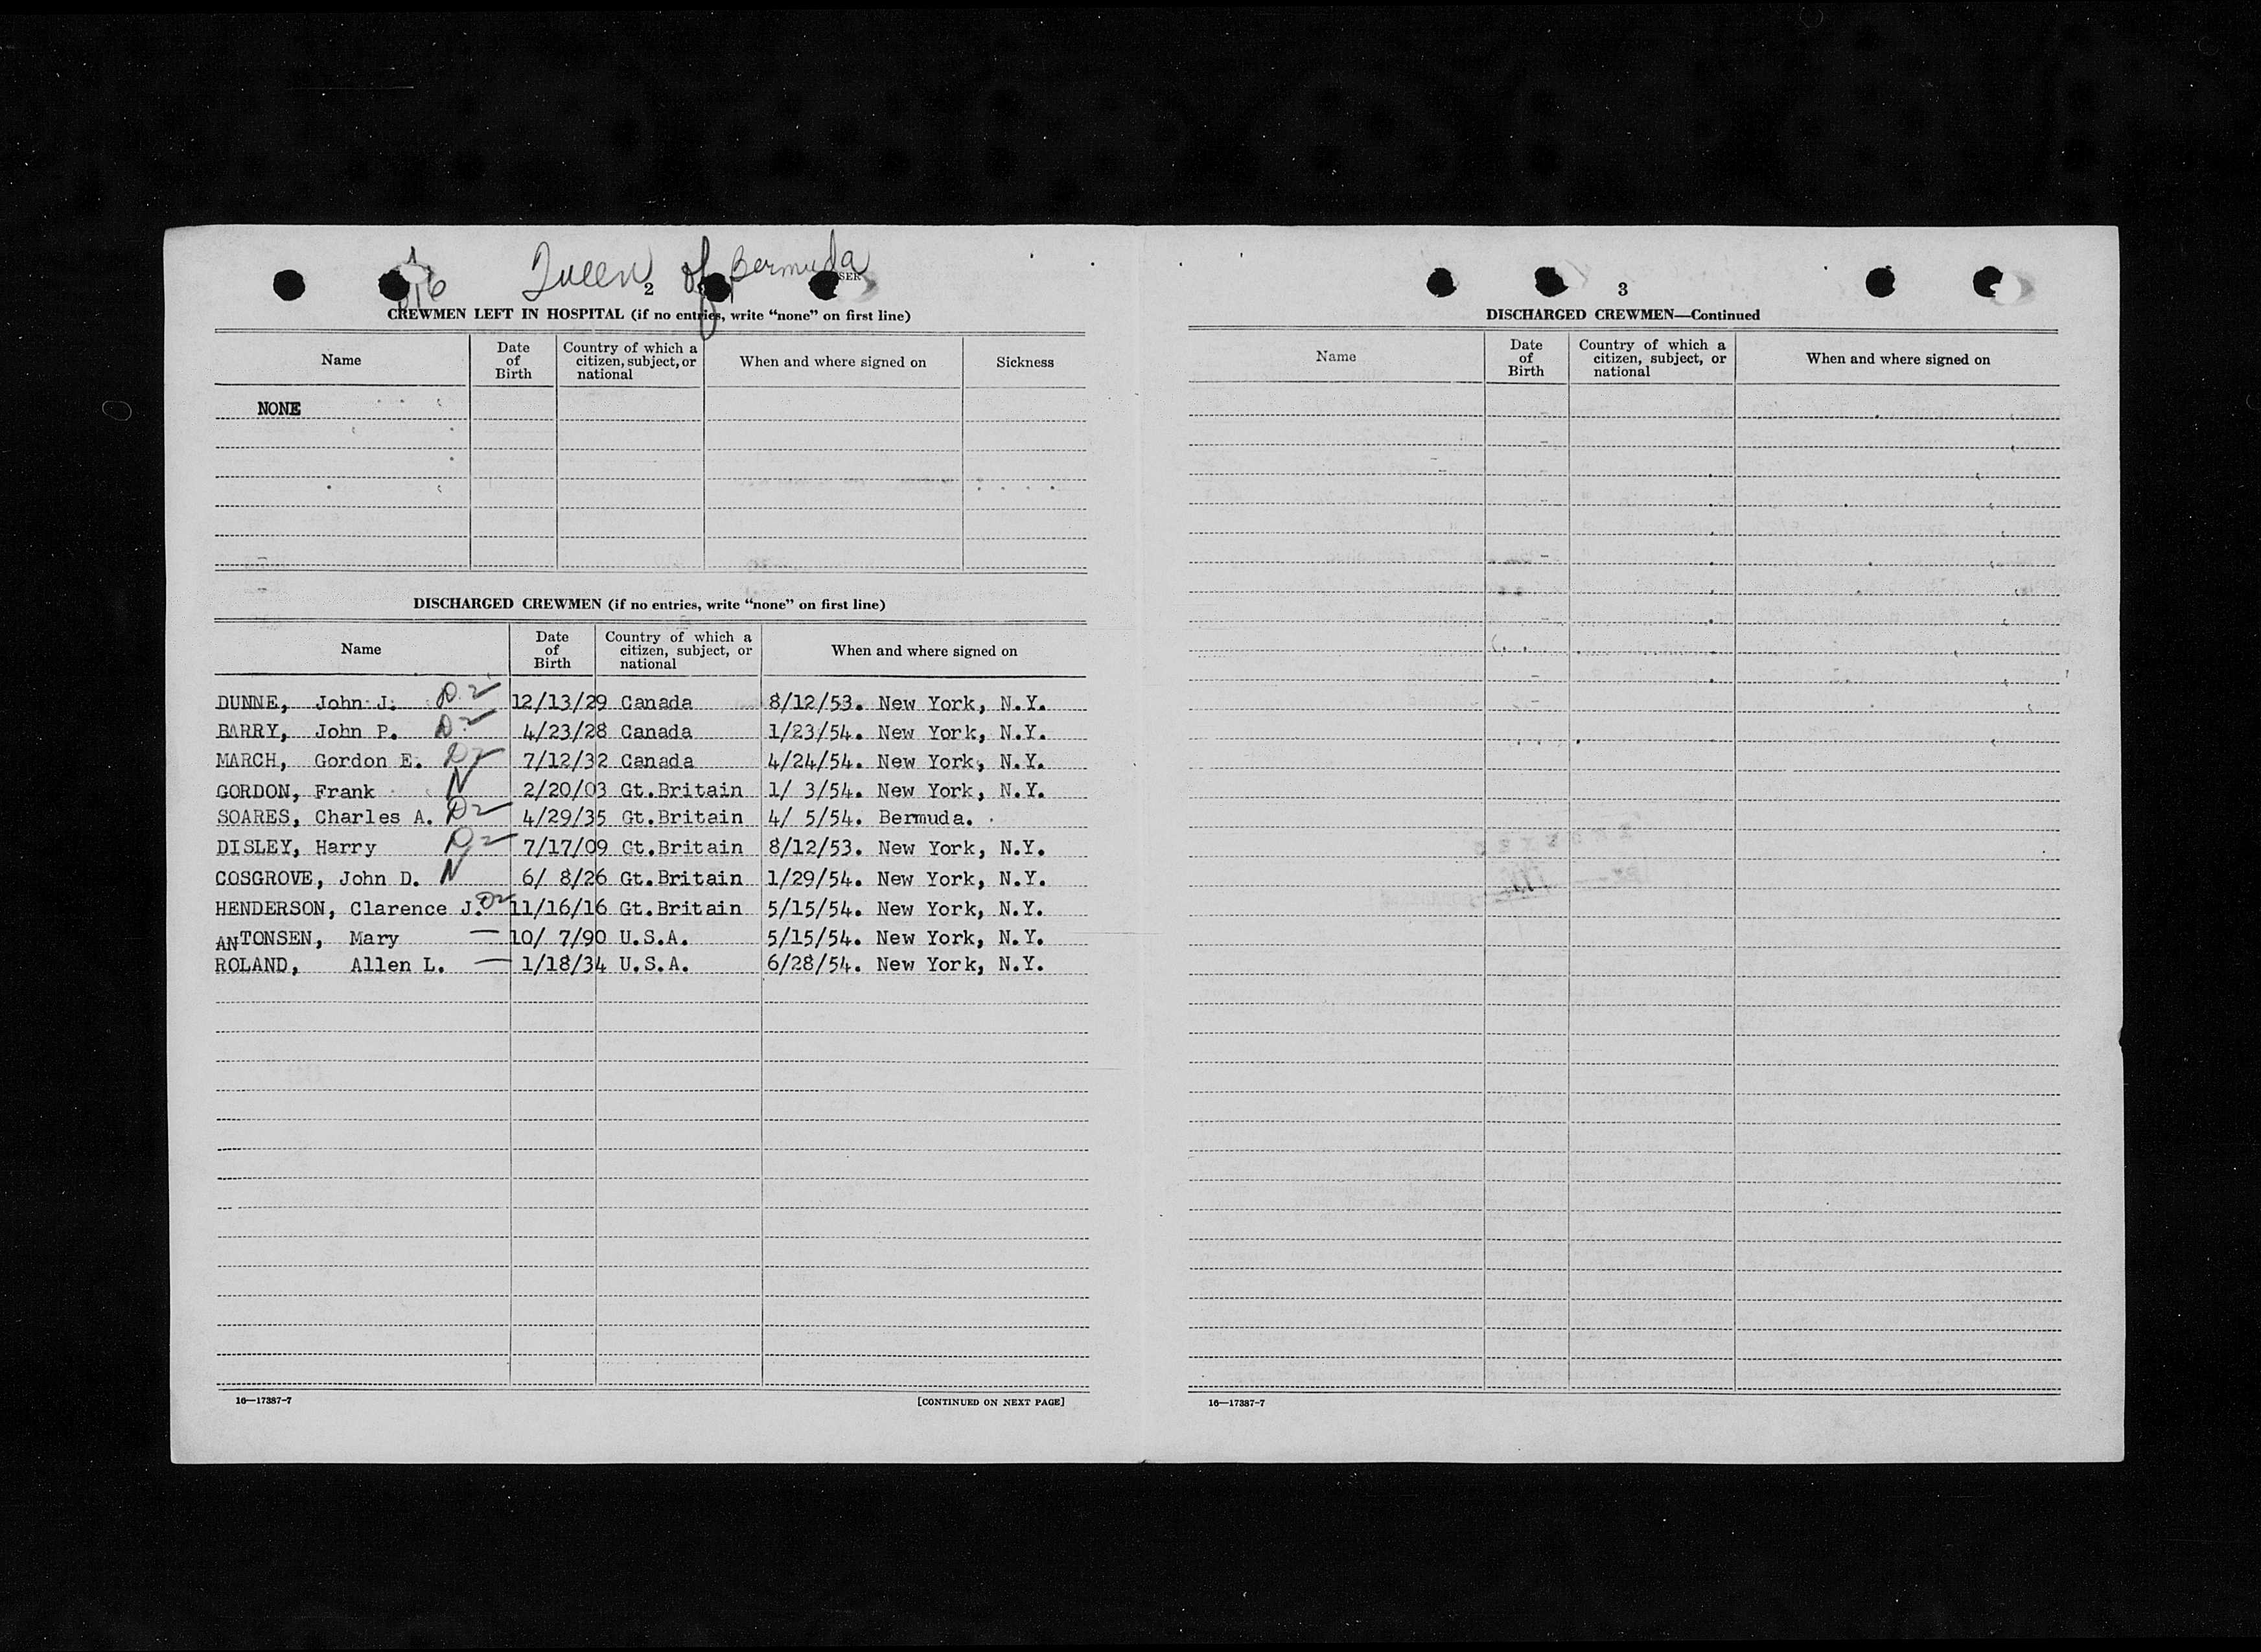 Queen of Bermuda
2
CREWMEN LEFT IN HOSPITAL (if no entries, write “none” on first line)
Name Date of Birth Country of which a citizen, subject, or national When and where signed on Sickness
NONE
DISCHARGED CREWMEN (if no entries, write “none” on first line)
Name Date of Birth Country of which a citizen, subject, or national When and where signed on
DUNNE, John J. D2 12/13/29 Canada 8/12/53. New York, N.Y.
BARRY, John P. D2 4/23/28 Canada 1/23/54. New York, N.Y.
MARCH, Gordon E. D2 7/12/32 Canada 4/24/54. New York, N.Y.
GORDON, Frank N 2/20/03 Gt.Britain 1/ 3/54. New York, N.Y.
SOARES, Charles A. D2 4/29/35 Gt.Britain 4/ 5/54. Bermuda.
DISLEY, Harry D2 7/17/09 Gt.Britain 8/12/53. New York, N.Y.
COSGROVE, John D. N 6/ 8/26 Gt.Britain 1/29/54. New York, N.Y.
HENDERSON, Clarence J. D2 11/16/16 Gt.Britain 5/15/54. New York, N.Y.
ANTONSEN, Mary — 10/ 7/90 U.S.A. 5/15/54. New York, N.Y.
ROLAND, Allen L. — 1/18/34 U.S.A. 6/28/54. New York, N.Y.
16—17387-7 [CONTINUED ON NEXT PAGE]
3
DISCHARGED CREWMEN—Continued
Name Date of Birth Country of which a citizen, subject, or national When and where signed on
16—17387-7